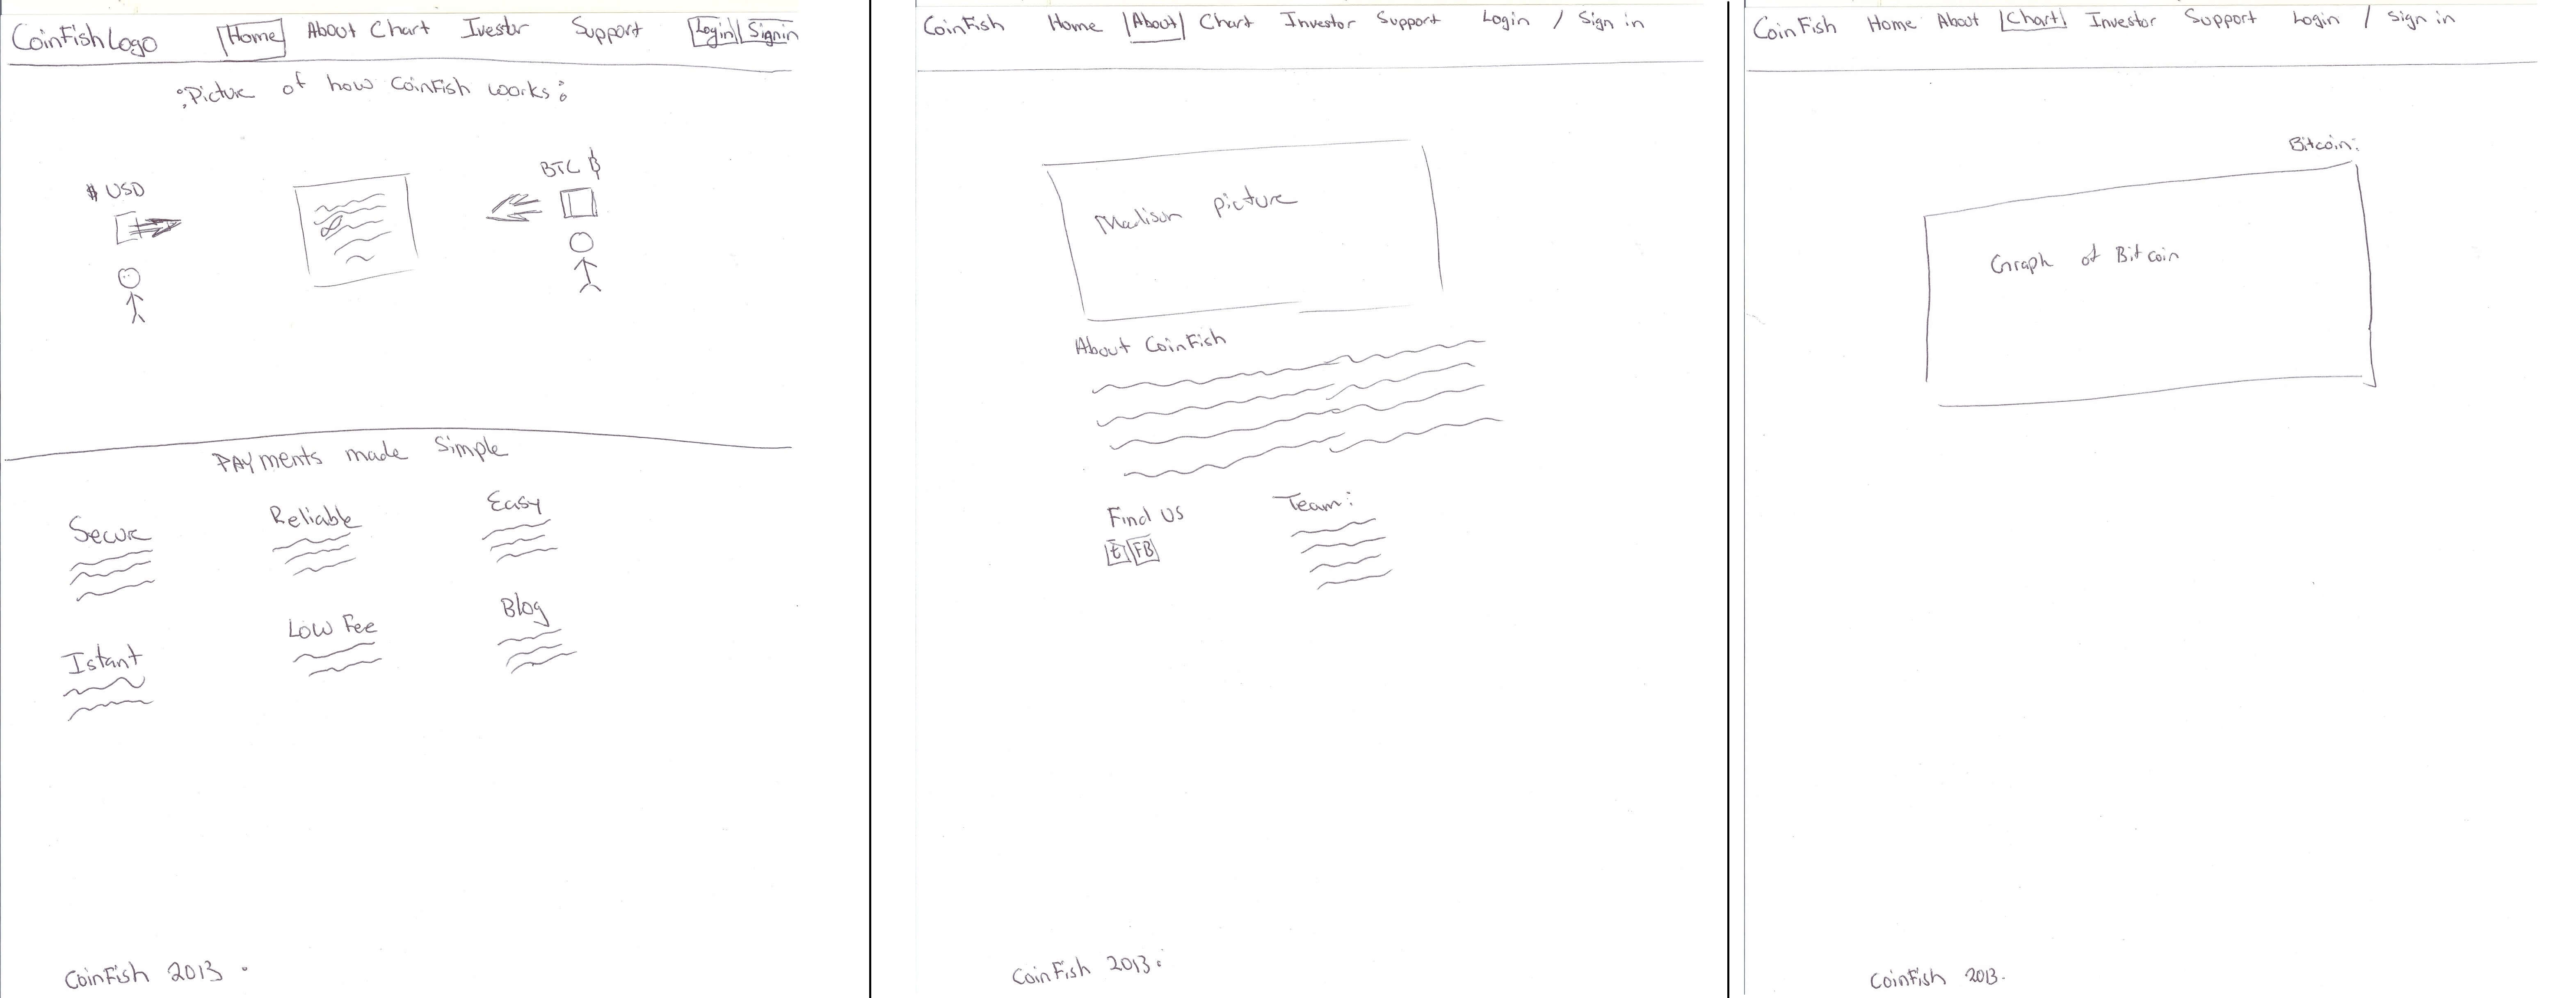 CoinFish Logo Home About Chart Ivestor Support Login Signin
Picture of how CoinFish works:
$ USD
BTC ₿
PAYments made Simple
Secure Reliable Easy
Istant Low Fee Blog
CoinFish 2013.
CoinFish Home About Chart Investor Support Login / Sign in
Madison picture
About CoinFish
Find US Team:
t FB
CoinFish 2013.
CoinFish Home About Chart Investor Support Login / Sign in
Bitcoin:
Graph of Bitcoin
CoinFish 2013.